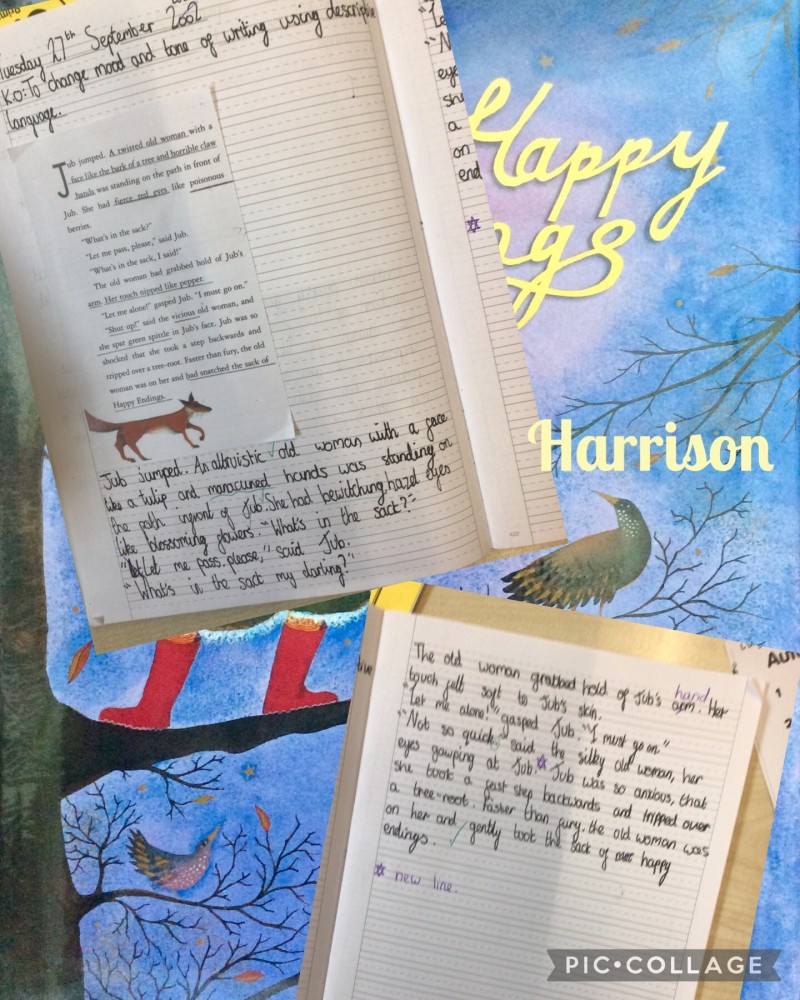 Tuesday 27th September 2002
KO: To change mood and tone of writing using descriptive
language.
Jub jumped. A twisted old woman with a
face like the bark of a tree and horrible claw
hands was standing on the path in front of
Jub. She had fierce red eyes like poisonous
berries.
"What's in the sack?"
"Let me pass, please," said Jub.
"What's in the sack, I said!"
The old woman had grabbed hold of Jub's
arm. Her touch nipped like pepper.
"Let me alone!" gasped Jub. "I must go on."
"Shut up!" said the vicious old woman, and
she spat green spittle in Jub's face. Jub was so
shocked that she took a step backwards and
tripped over a tree-root. Faster than fury, the old
woman was on her and had snatched the sack of
Happy Endings.
Jub jumped. An altruistic old woman with a face
like a tulip and manacured hands was standing on
the path infront of Jub. She had bewitching, hazel eyes
like blossoming flowers. "What's in the sact?"
"Let me pass, please," said Jub.
"What's in the sact my darling?"
"Le
"N
eye
she
a
on
end
Happy
ngs
Harrison
The old woman grabbed hold of Jub's hand arm. Her
touch felt soft to Jub's skin.
"Let me alone!" gasped Jub. "I must go on."
"Not so quick, said the silky old woman, her
eyes gawping at Jub. Jub was so anxious, that
she took a fast step backwards and tripped over
a tree-root. Faster than fury, the old woman was
on her and gently took the sack of happy
endings.
new line.
PIC•COLLAGE